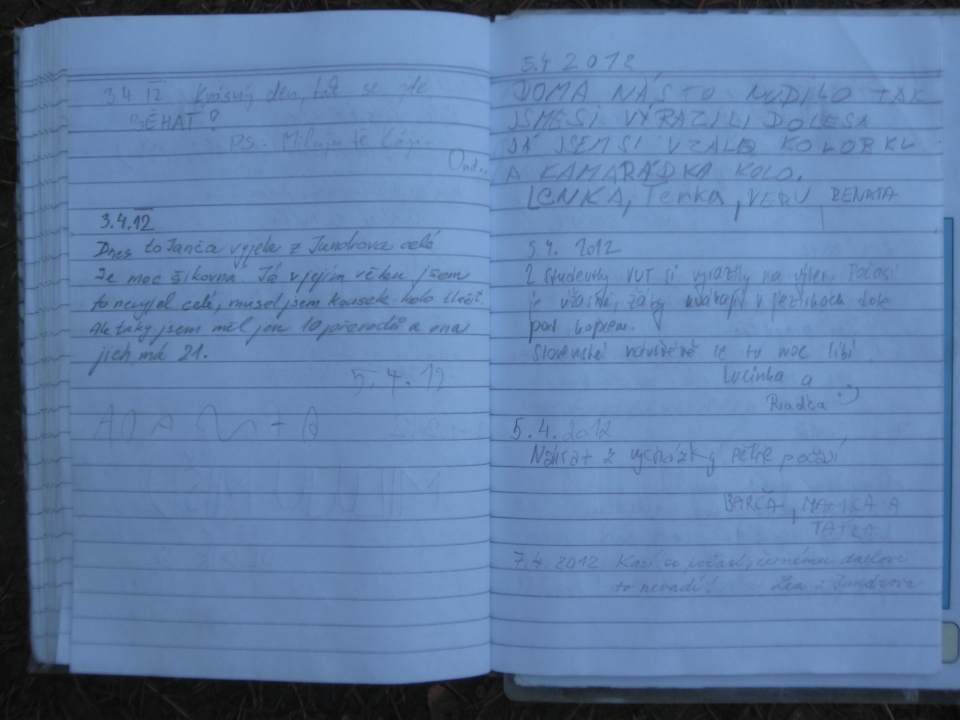 3.4.12 Krásný den, tak se jde
BĚHAT!
PS: Miluju tě
3.4.12
Dnes to Janča vyjela z Jundrova celé
Je moc šikovná. Já v jejím věku jsem
to nevyjel celé, musel jsem kousek kolo tlačit.
Ale taky jsem měl jen 10 převodů a ona
jich má 21.
5.4.12
5.4 2012
DOMA NÁS TO NUDILO TAK
JSME SI VYRAZILI DO LESA
JÁ JSEM SI VZALA KOLOBKU
A KAMARÁDKA KOLO.
LENKA, Terka, VERU RENATA
5.4. 2012
2 studentky VUT si vyrazily na výlet. Počasí
je
pod kopcem.
Slovenské návštěvě se tu moc líbí
Lucinka a
Radka :)
5.4.2012
Návrat z vycházky pěkné počasí
BARČA, A
TAŤKA
7.4.2012 Kazí se počasí, černému datlovi
to nevadí! z Jundrova